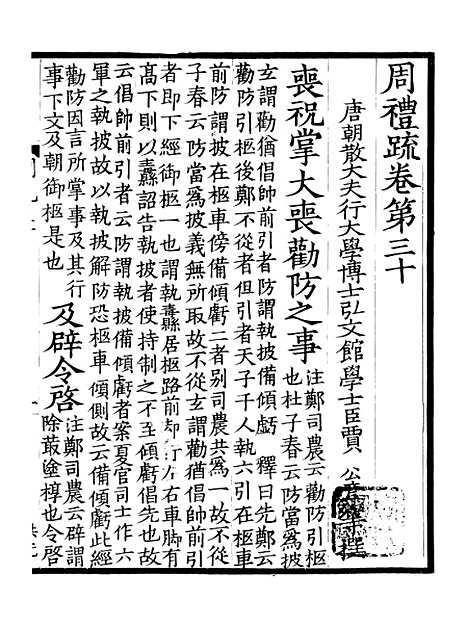 周禮疏卷第三十
唐朝散大夫行大學博士弘文館學士臣賈 公彥等撰
喪祝掌大喪勸防之事 注鄭司農云勸防引柩
也杜子春云防當為披
玄謂勸猶倡帥前引者防謂執披備傾虧 釋曰先鄭云
勸防引柩後鄭不從者但引者天子千人執六引在柩車
前防謂披在柩車傍備傾虧二者别司農共為一故不從
子春云防當為披義無所取故不從玄謂勸猶倡帥前引
者即下經御柩一也謂執纛居柩路前却行左右車脚有
髙下則以纛詔告執披者使持制之不至傾虧倡先也故
云倡帥前引者云防謂執披備傾虧者案夏官司士作六
軍之執披故以執披解防恐柩車傾側故云備傾虧此經
勸防因言所掌事及其行
事下文及朝御柩是也
及辟令啓 注鄭司農云辟謂
除菆塗椁也令啓